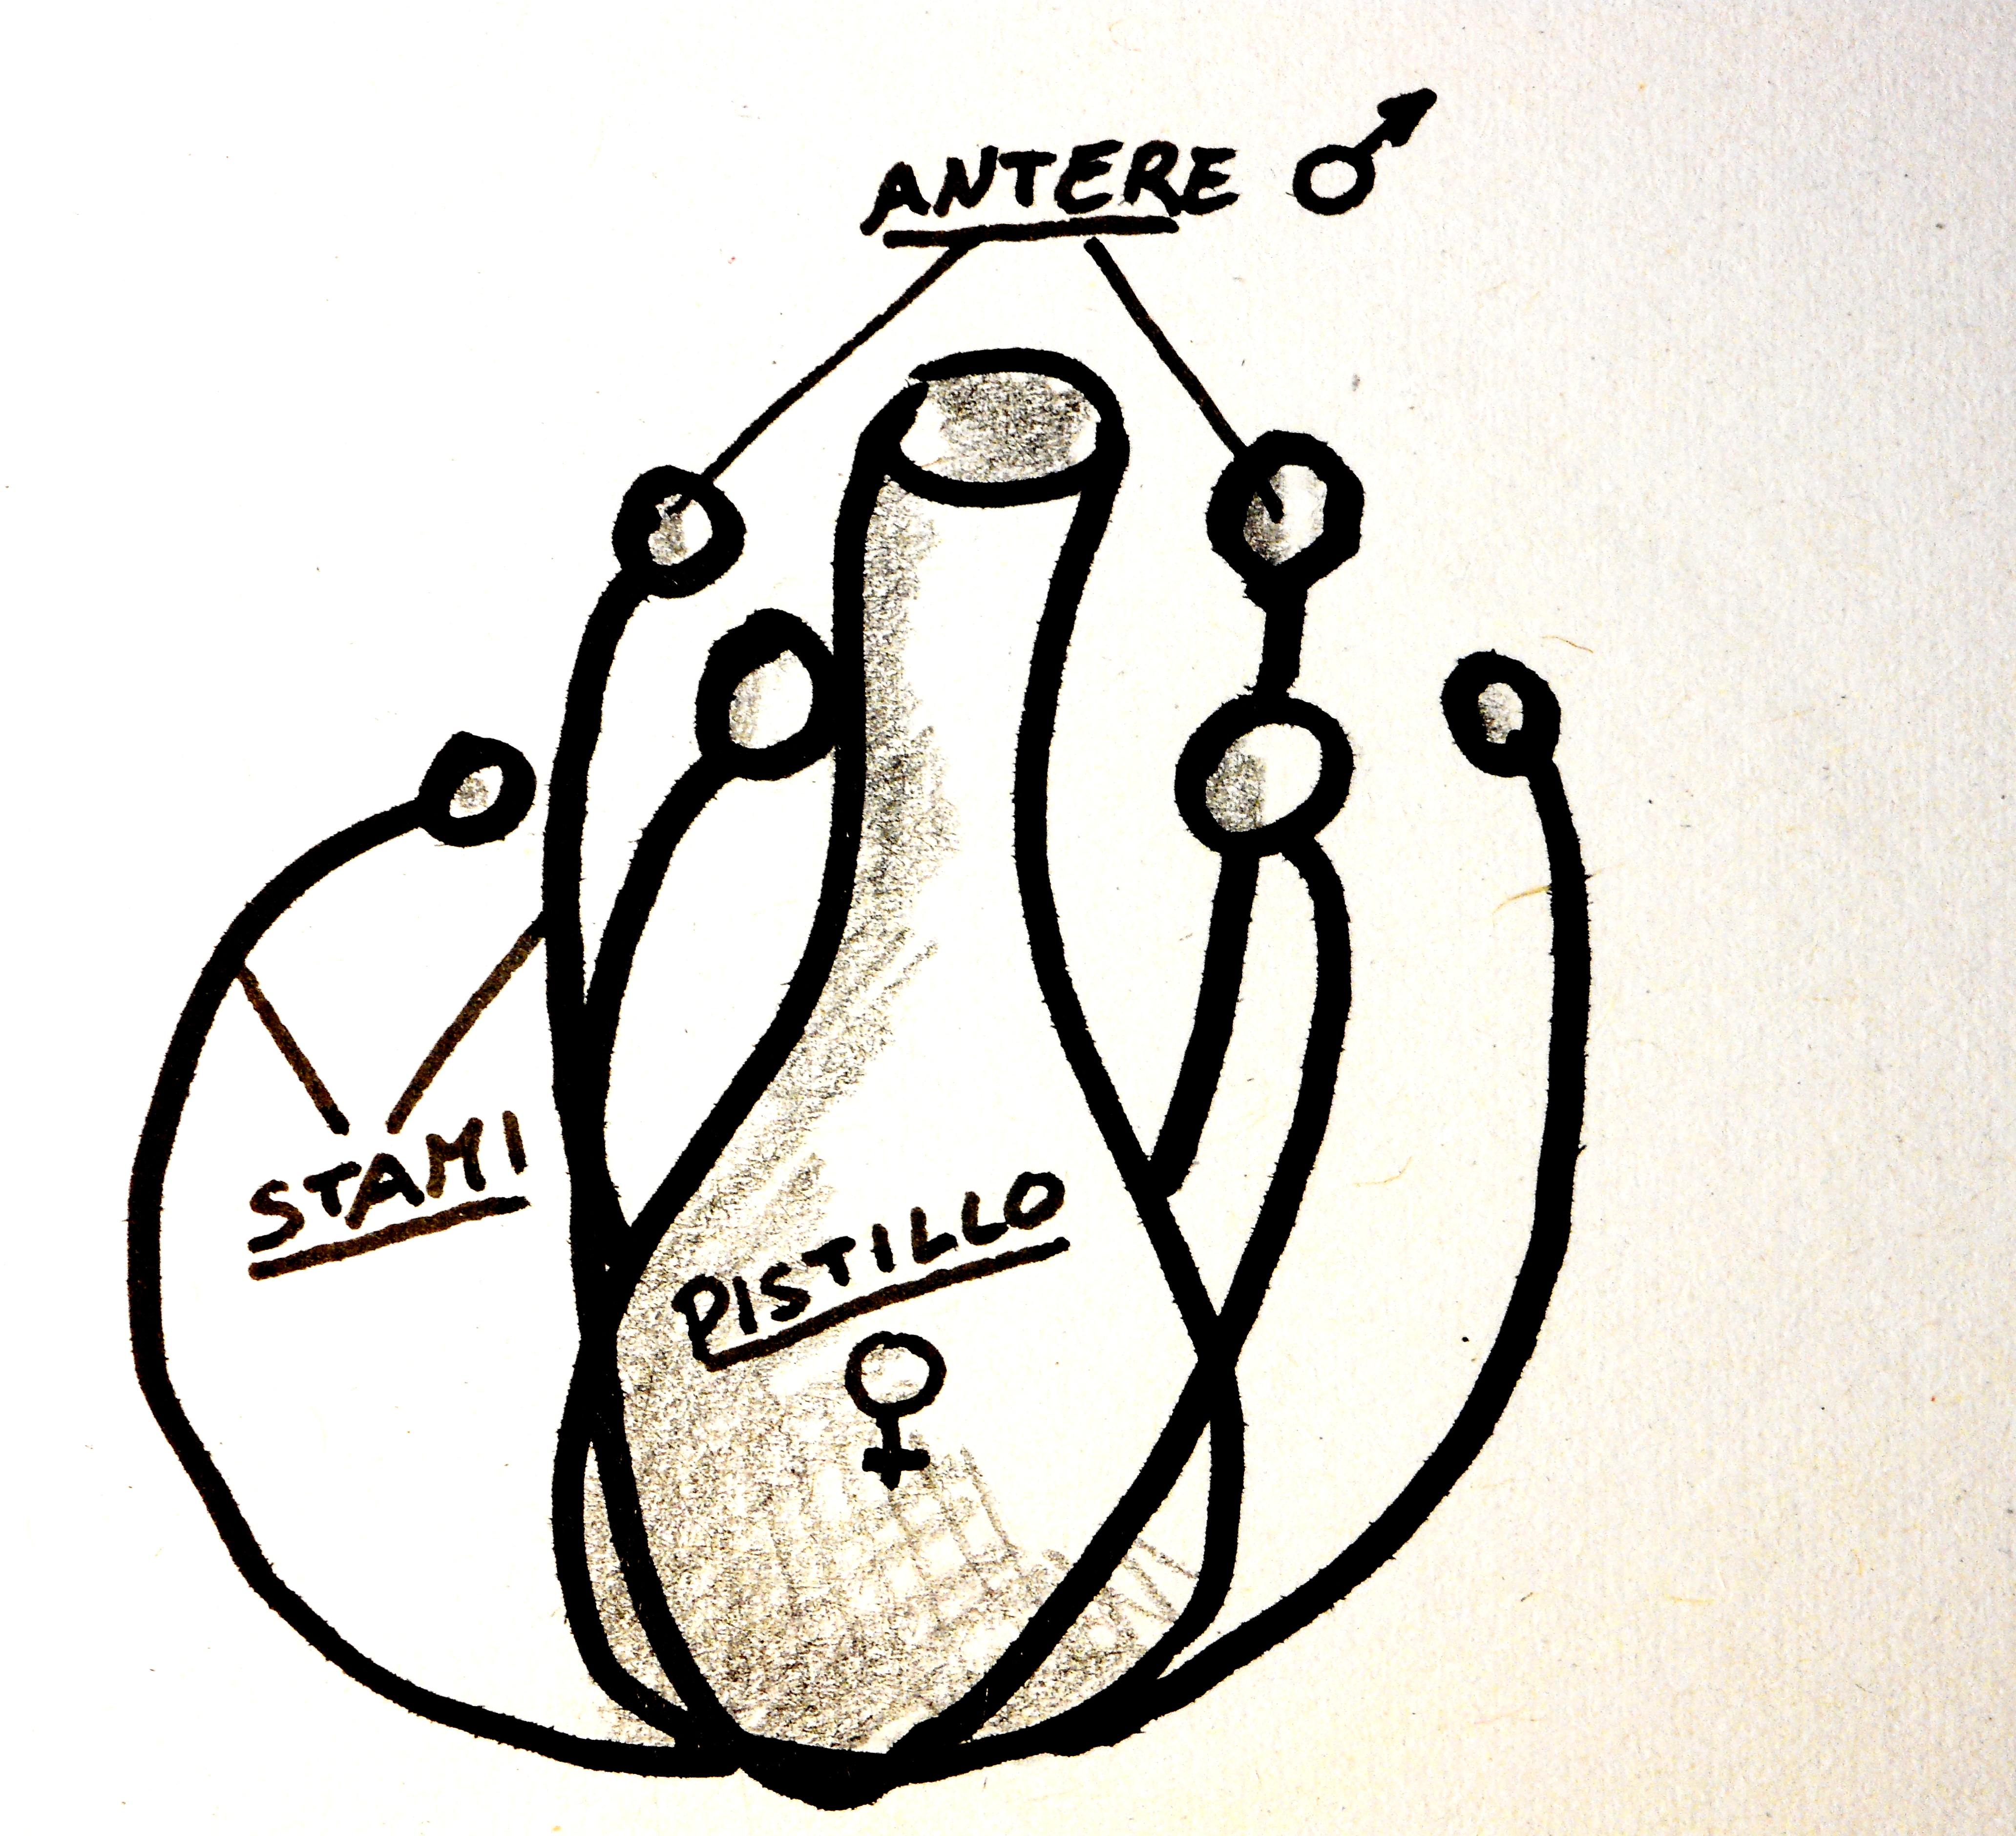 ANTERE ♂
STAMI
PISTILLO
♀